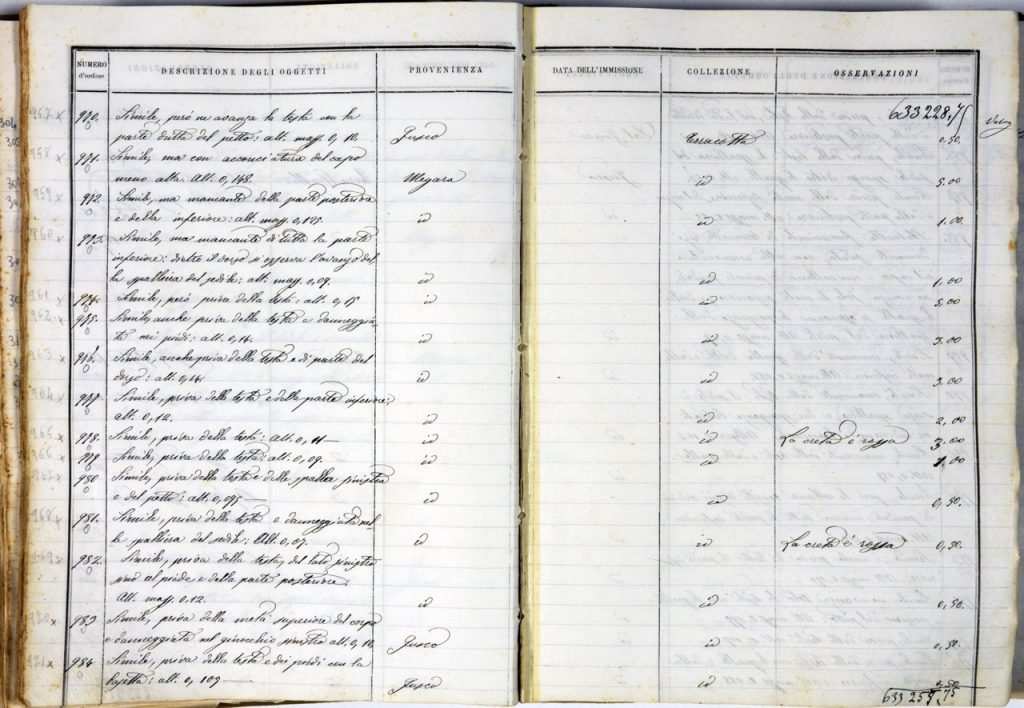 NUMERO d'ordine DESCRIZIONE DEGLI OGGETTI PROVENIENZA DATA DELL'IMMISSIONE COLLEZIONE OSSERVAZIONI
633228,75
970. Simile, però ne avanza la testa con la
parte dritta del petto: alt. mass. 0,10. Fusco Terracotta 0.50.
971. Simile, ma con acconciatura del capo
meno alta. Alt. 0,148. Megara id 5.00
972 Simile, ma mancante della parte posteriore
e della inferiore: alt. mass. 0,125. id id 1.00
973. Simile, ma mancante di tutta la parte
inferiore: dietro il dorso si osserva l'avanzo del
la spalliera del sedile: alt. mass. 0,09. id id 1.00
974. Simile, però priva della testa: alt. 0,15 id id 5.00
975. Simile, anche priva della testa e danneggia
ta nei piedi: alt. 0,14. id id 3.00
976. Simile, anche priva della testa e di parte del
dorso: alt. 0,14. id id 3.00
977. Simile, priva della testa e della parte inferiore:
alt. 0,12. id id 2,00
978. Simile, priva della testa: alt. 0,11 id id La creta è rossa 3.00
979 Simile, priva della testa: alt. 0,09. id id 1.00
980 Simile, priva della testa e della spalla sinistra
e del petto: alt. 0,095 id id 0,50.
981. Simile, priva della testa e danneggiata nel
la spalliera del sedile: Alt. 0,07. id id La creta è rossa 0,50.
982. Simile, priva della testa, del lato sinistro
fino al piede e della parte posteriore
Alt. mass. 0,12. id id 0,50.
983 Simile, priva della metà superiore del corpo
e danneggiata nel ginocchio sinistro alt. 0,10, Fusco id 0,50.
984 Simile, priva della testa e dei piedi con la
basetta: alt. 0,109 Fusco id 0,50
633255,75